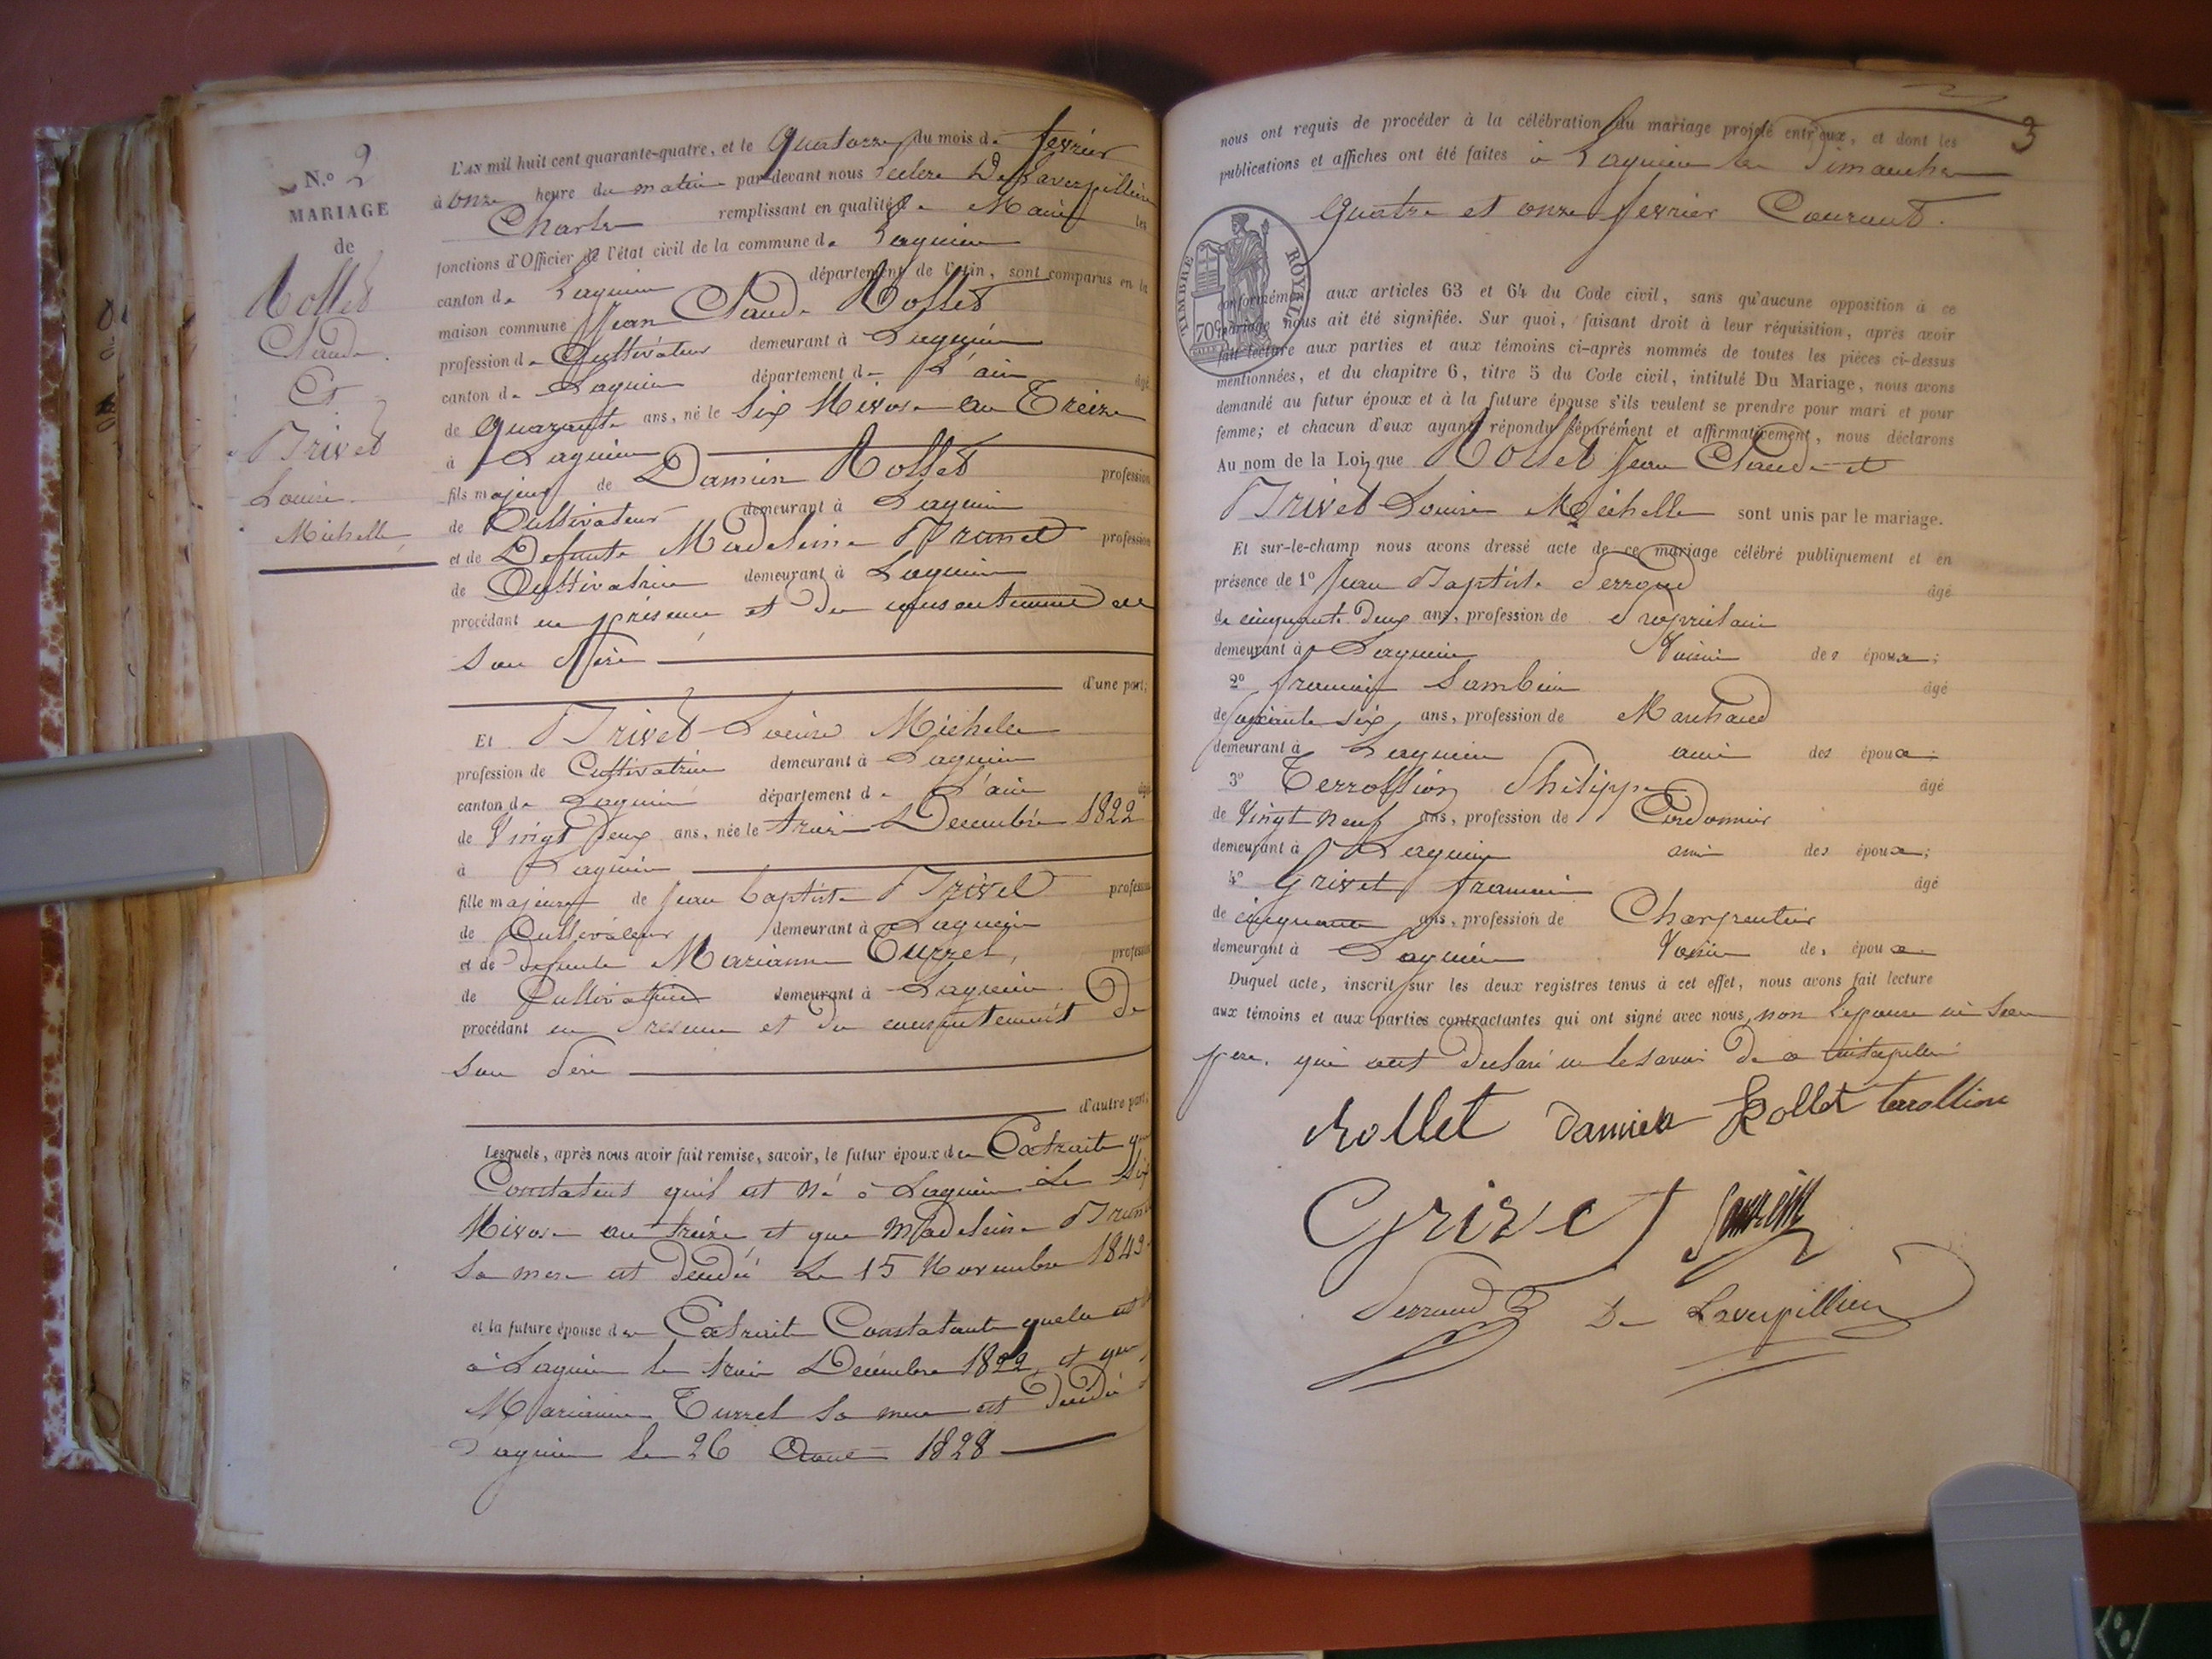 N.º 2
MARIAGE
de
Rollet
Claude.
Et
Brivet
Louise
Michelle
L'AN mil huit cent quarante-quatre, et le Quatorze du mois de fevrier
à onze heure du matin par-devant nous De Laverpillière
Charles remplissant en qualité de Maire les
fonctions d'Officier de l'état civil de la commune de Lagnieu
canton de Lagnieu département de l'Ain, sont comparus en la
maison commune Jean Claude Rollet
profession de Cultivateur demeurant à Lagnieu
canton de Lagnieu département de L'ain âgé
de quarante ans, né le Six Nivose an Treize
à Lagnieu
fils majeur de Damien Rollet profession
de Cultivateur demeurant à Lagnieu
et de Defunte Madeleine Brunet profession
de Cultivatrice demeurant à Lagnieu
procédant en présence et du consentement de
son Père
d'une part;
Et Brivet Louise Michelle
profession de Cultivatrice demeurant à Lagnieu
canton de Lagnieu département de L'ain âgé
de Vingt deux ans, née le trois Decembre 1822
à Lagnieu
fille majeure de Jean baptiste Brivet profession
de Cultivateur demeurant à Lagnieu
et de defunte Marianne Turrel, profession
de Cultivatrice demeurant à Lagnieu
procédant en Presence et du consentement de
son Père
d'autre part,
Lesquels, après nous avoir fait remise, savoir, le futur époux des Extraits
Constatant qu'il est né à Lagnieu le Six
Nivose an treize et que Madeleine Brunet
Sa mere est décédé Le 15 Novembre 1843
et la future épouse des Extraits Constatant quelle est
à Lagnieu le trois Décembre 1822 et que
Marianne Turrel Sa mere est décédé
Lagnieu le 26 Aout 1828
3
nous ont requis de procéder à la célébration du mariage projeté entr'eux, et dont les
publications et affiches ont été faites à Lagnieu les Dimanches
Quatre et onze fevrier Courant.
TIMBRE ROYAL
70c
conformément aux articles 63 et 64 du Code civil, sans qu'aucune opposition à ce
mariage nous ait été signifiée. Sur quoi, faisant droit à leur réquisition, après avoir
fait lecture aux parties et aux témoins ci-après nommés de toutes les pièces ci-dessus
mentionnées, et du chapitre 6, titre 5 du Code civil, intitulé Du Mariage, nous avons
demandé au futur époux et à la future épouse s'ils veulent se prendre pour mari et pour
femme; et chacun d'eux ayant répondu séparément et affirmativement, nous déclarons
Au nom de la Loi, que Rollet Jean Claude et
Brivet Louise Michelle sont unis par le mariage.
Et sur-le-champ nous avons dressé acte de ce mariage célébré publiquement et en
présence de 1º Jean Baptiste Perroud âgé
de cinquante Deux ans, profession de Propriétaire
demeurant à Lagnieu Voisin des époux;
2º francois Sambin âgé
de soixante six ans, profession de Marchand
demeurant à Lagnieu ami des époux
3º Terrollion Philippe âgé
de Vingt neuf ans, profession de Cordonnier
demeurant à Lagnieu ami des époux;
4º Grivet francois âgé
de cinquante ans, profession de Charpentier
demeurant à Lagnieu Voisin des époux
Duquel acte, inscrit sur les deux registres tenus à cet effet, nous avons fait lecture
aux témoins et aux parties contractantes qui ont signé avec nous, non Lepouse ni son
pere. qui ont declaré ne le savoir de ce
Rollet Damien Rollet terrollion
Grivet
Perroud De Laverpillière